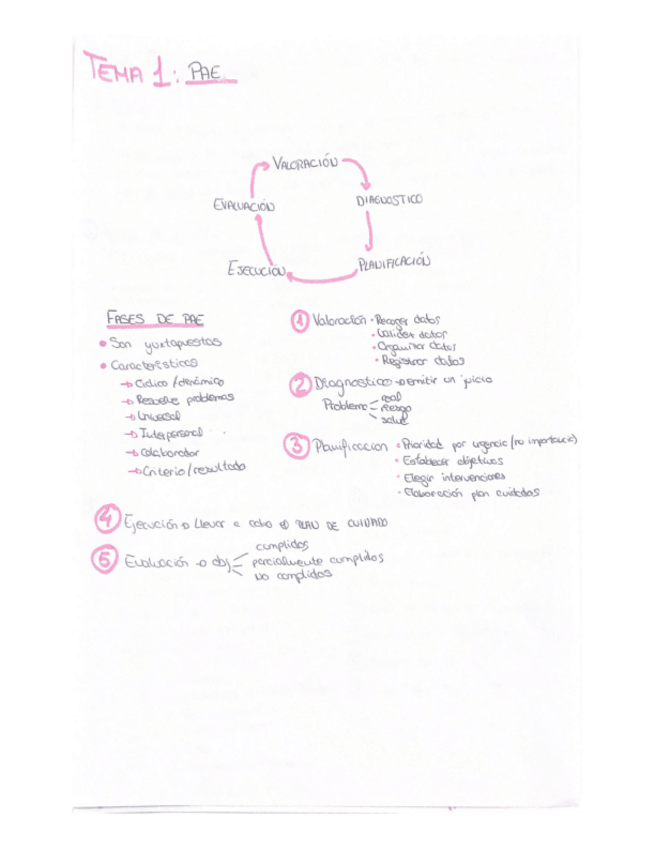 TEMA 1: PAE
VALORACIÓN
EVALUACIÓN
DIAGNOSTICO
EJECUCIÓN
PLANIFICACIÓN
FASES DE PAE
• Son yuxtapuestas
• Características
→ Cíclico/dinámico
→ Resuelve problemas
→ Universal
→ Interpersonal
→ Colaborador
→ Criterio/resultado
1 Valoración • Recoger datos
• Validar datos
• Organizar datos
• Registrar datos
2 Diagnostico → emitir un juicio
Problema real
riesgo
salud
3 Planificacion • Prioridad por urgencia (no importancia)
• Establecer objetivos
• Elegir intervenciones
• Elaboración plan cuidados
4 Ejecución → Llevar a cabo el PLAN DE CUIDADO
5 Evaluación → obj
cumplidos
parcialmente cumplidos
No cumplidos